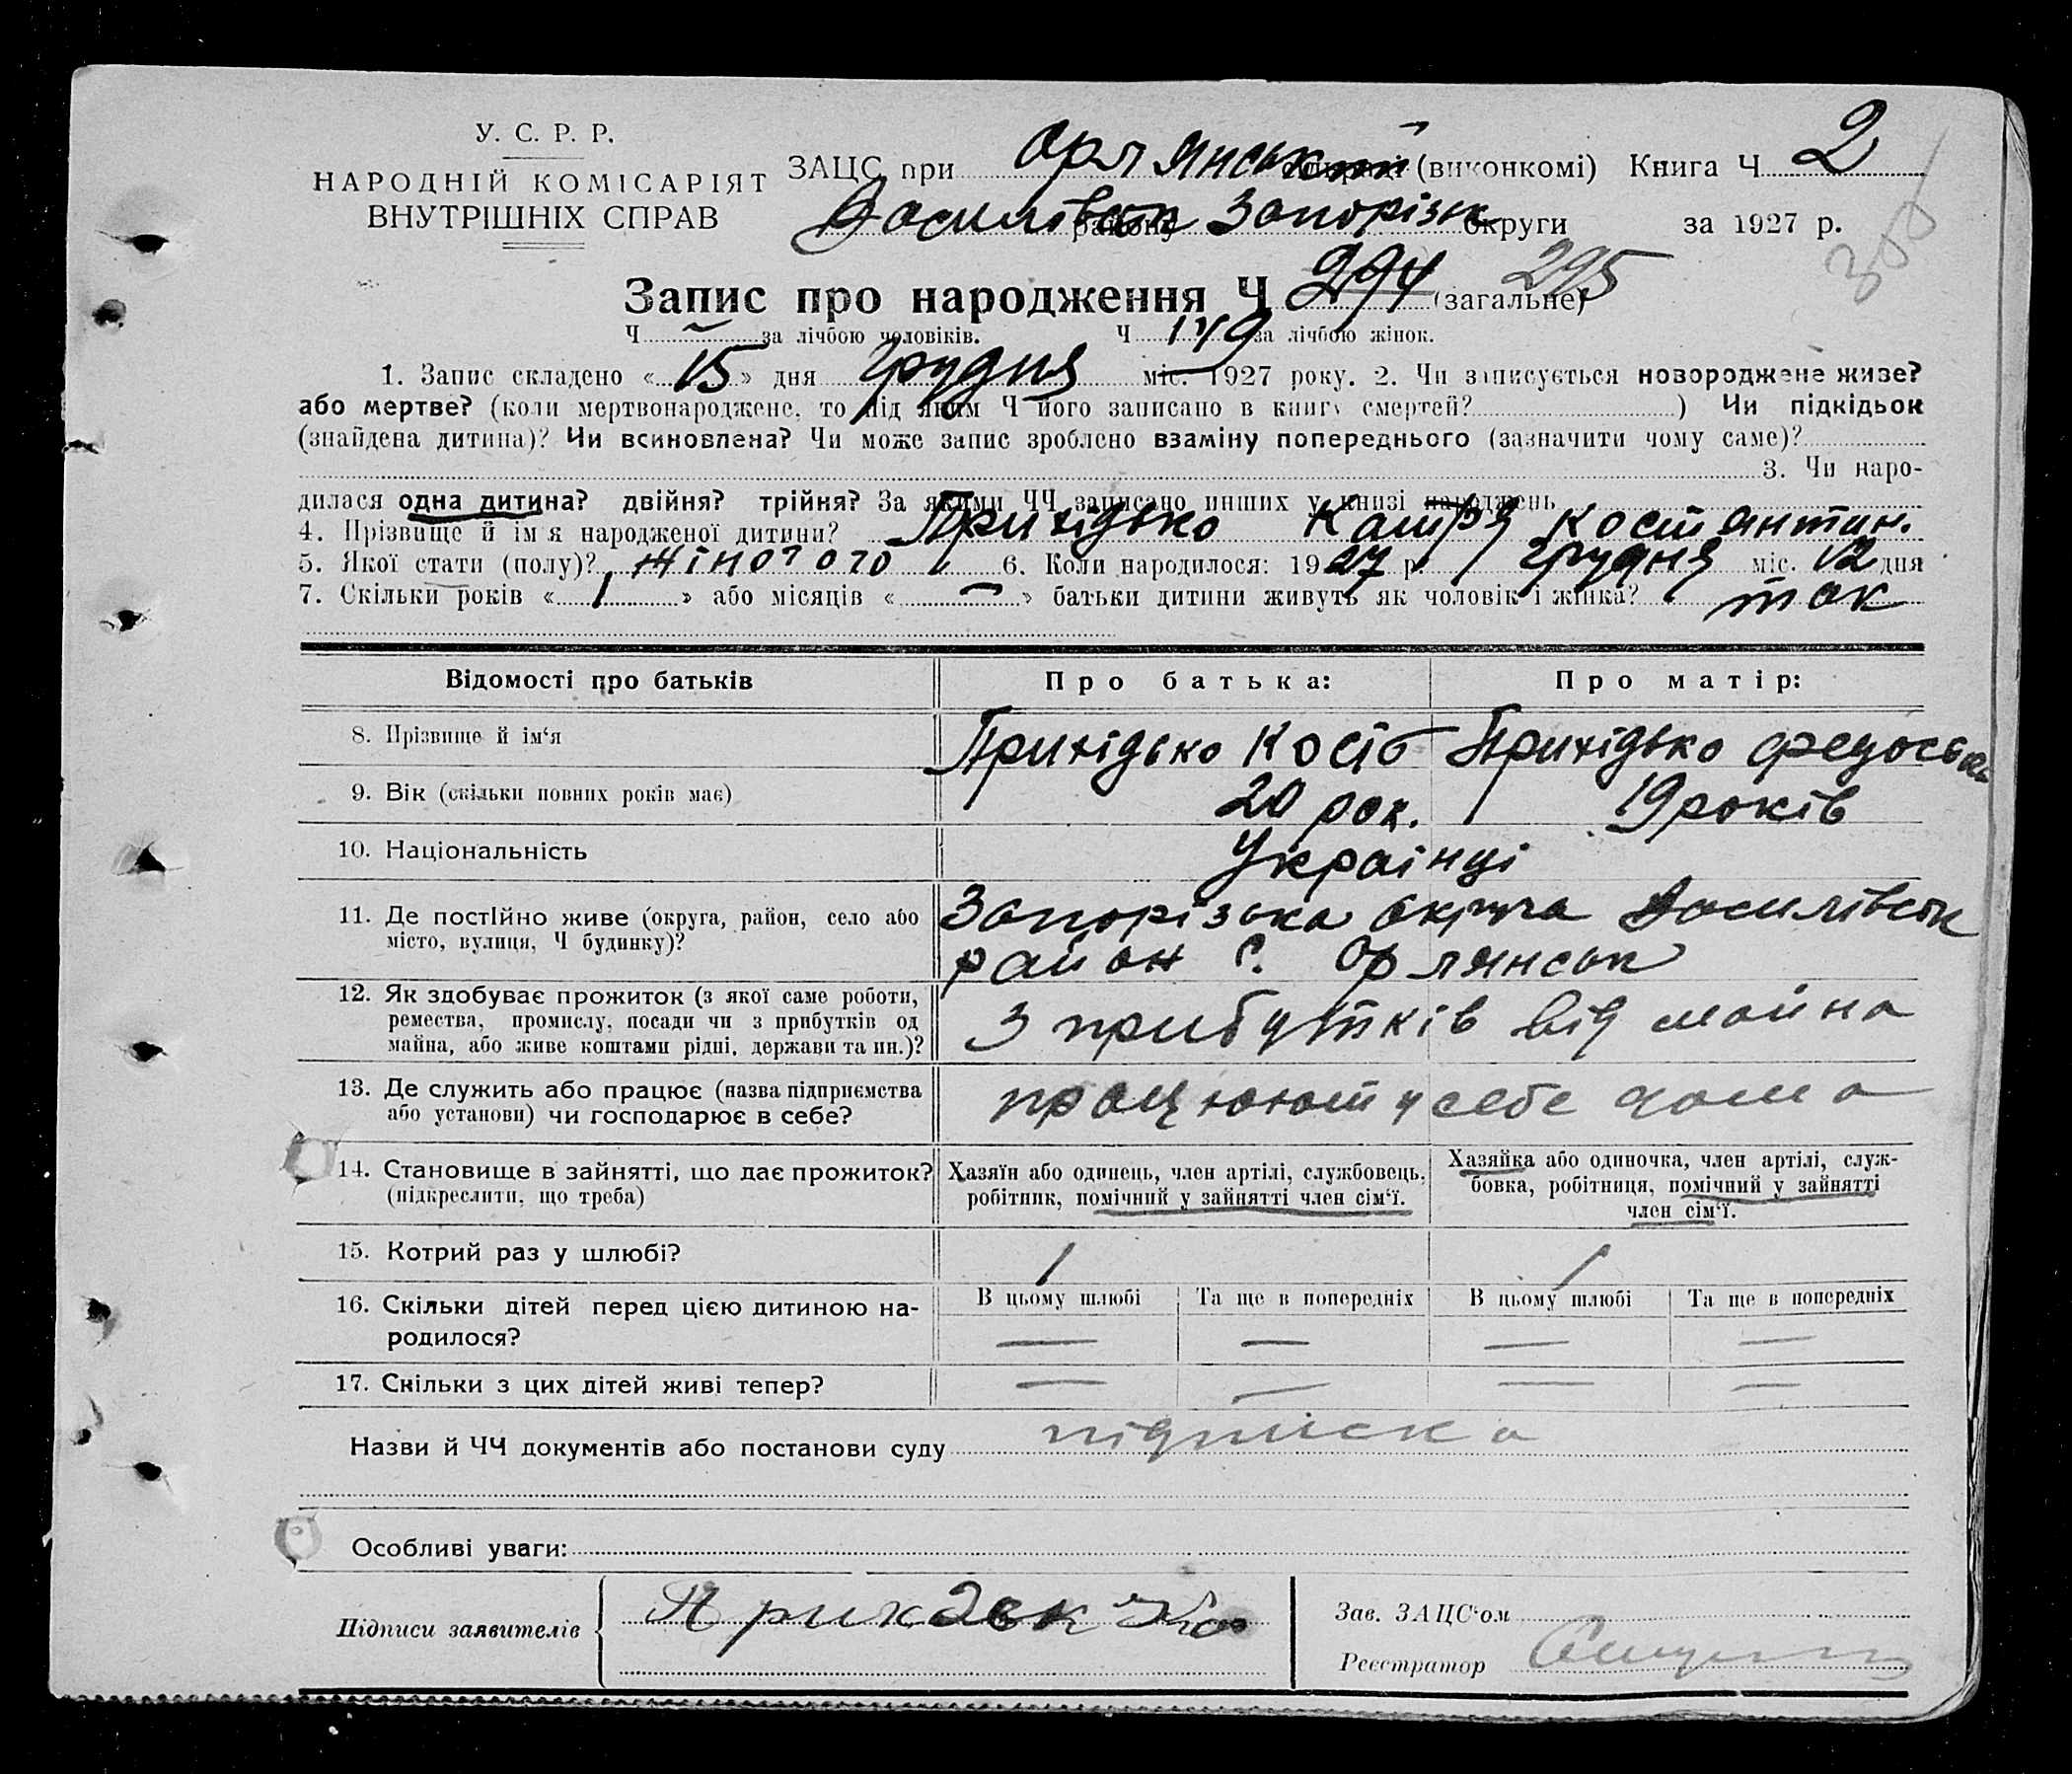 У. С. Р. Р.
НАРОДНІЙ КОМІСАРІЯТ
ВНУТРІШНІХ СПРАВ
ЗАЦС при Орлянський (виконкомі) Книга Ч 2
Василівськ району Запорізьк округи за 1927 р.
300
Запис про народження Ч 294 (загальне) 295
Ч — за лічбою чоловіків. Ч 149 за лічбою жінок.
1. Запис складено «15» дня грудня міс. 1927 року. 2. Чи записується новороджене живе?
або мертве? (коли мертвонароджене, то під яким Ч його записано в книгу смертей? ) Чи підкідьок
(знайдена дитина)? Чи всиновлена? Чи може запис зроблено взаміну попереднього (зазначити чому саме)?
3. Чи наро-
дилася одна дитина? двійня? трійня? За якими ЧЧ записано инших у книзі народжень
4. Прізвище й ім'я народженої дитини? Прихідько Катря Костянтин.
5. Якої стати (полу)? жіночого 6. Коли народилося: 1927 р. грудня міс. 12 дня
7. Скільки років «1» або місяців «—» батьки дитини живуть як чоловік і жінка? так
Відомості про батьків Про батька: Про матір:
8. Прізвище й ім'я Прихідько Кость Прихідько Федоська
9. Вік (скільки повних років має) 20 рок. 19 років
10. Національність Українці
11. Де постійно живе (округа, район, село або Запорізька округа Василівськ
місто, вулиця, Ч будинку)? район с. Орлянськ
12. Як здобуває прожиток (з якої саме роботи,
ремества, промислу, посади чи з прибутків од З прибутків від майна
майна, або живе коштами рідні, держави та ин.)?
13. Де служить або працює (назва підприємства працюют у себе дома
або установи) чи господарює в себе?
14. Становище в зайнятті, що дає прожиток?
(підкреслити, що треба)
Хазяїн або одинець, член артілі, службовець,
робітник, помічний у зайнятті член сім'ї.
Хазяйка або одиночка, член артілі, служ-
бовка, робітниця, помічний у зайнятті
член сім'ї.
15. Котрий раз у шлюбі? 1 1
16. Скільки дітей перед цією дитиною на- В цьому шлюбі Та ще в попередніх В цьому шлюбі Та ще в попередніх
родилося? — — — —
17. Скільки з цих дітей живі тепер? — — — —
Назви й ЧЧ документів або постанови суду підписка
Особливі уваги:
Підписи заявителів
Зав. ЗАЦС'ом
Реєстратор